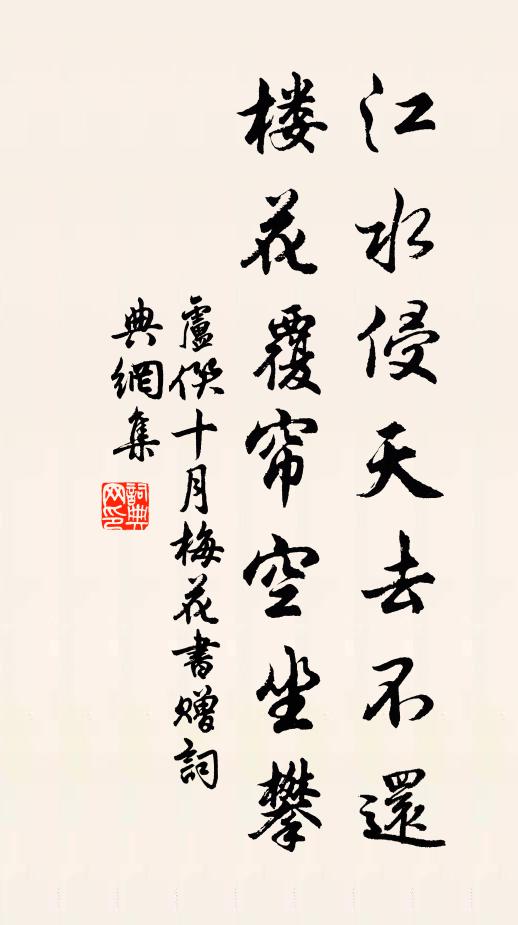 江水侵天去不還
楼花覆帘空坐攀
盧僎十月梅花書贈詞
典網集
詞典
网印